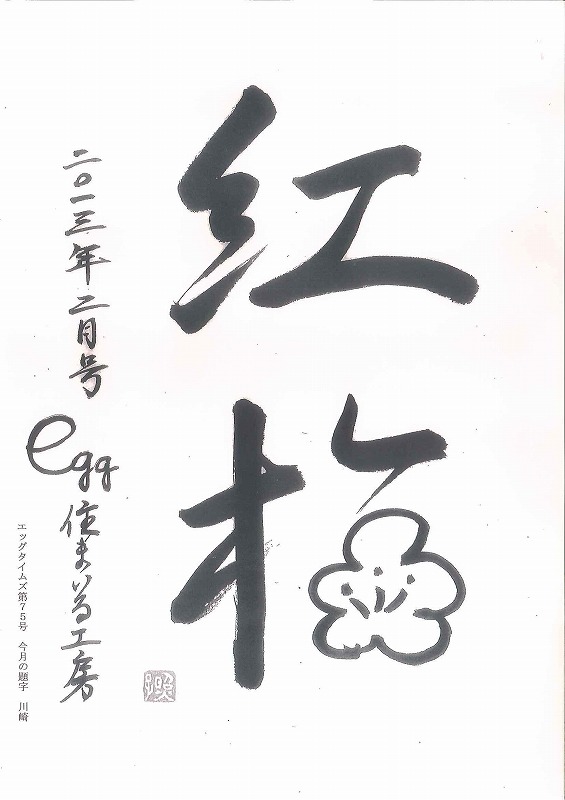 紅梅
二〇一三年二月号
egg住まいる工房
エッグタイムズ第75号　今月の題字　川崎